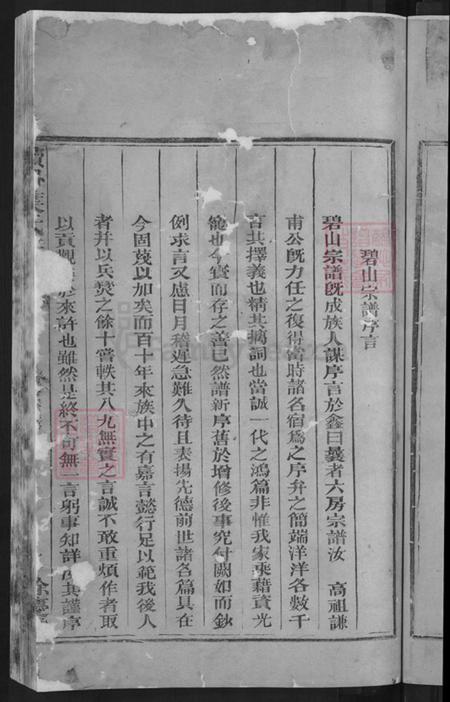 碧山宗譜序言
碧山宗譜既成族人謀序言於鑫曰曩者六房宗譜汝 高祖謙
甫公既力任之復得當時諸名宿為之序弁之簡端洋洋各數千
言其擇義也精其摛詞也當誠一代之鴻篇非惟我家乘藉資光
寵也今實而存之善已然譜新序舊於增修後事究付闕如而鈔
例求言又慮日月稽遲急難久待且表揚先德前世諸名篇具在
今固蔑以加矣而百十年來族中之有嘉言懿行足以範我後人
者并以兵燹之餘十嘗軼其八九無實之言誠不敢重煩作者取
以貢觀於來許也雖然是終不可無一言躬事知詳其謹序